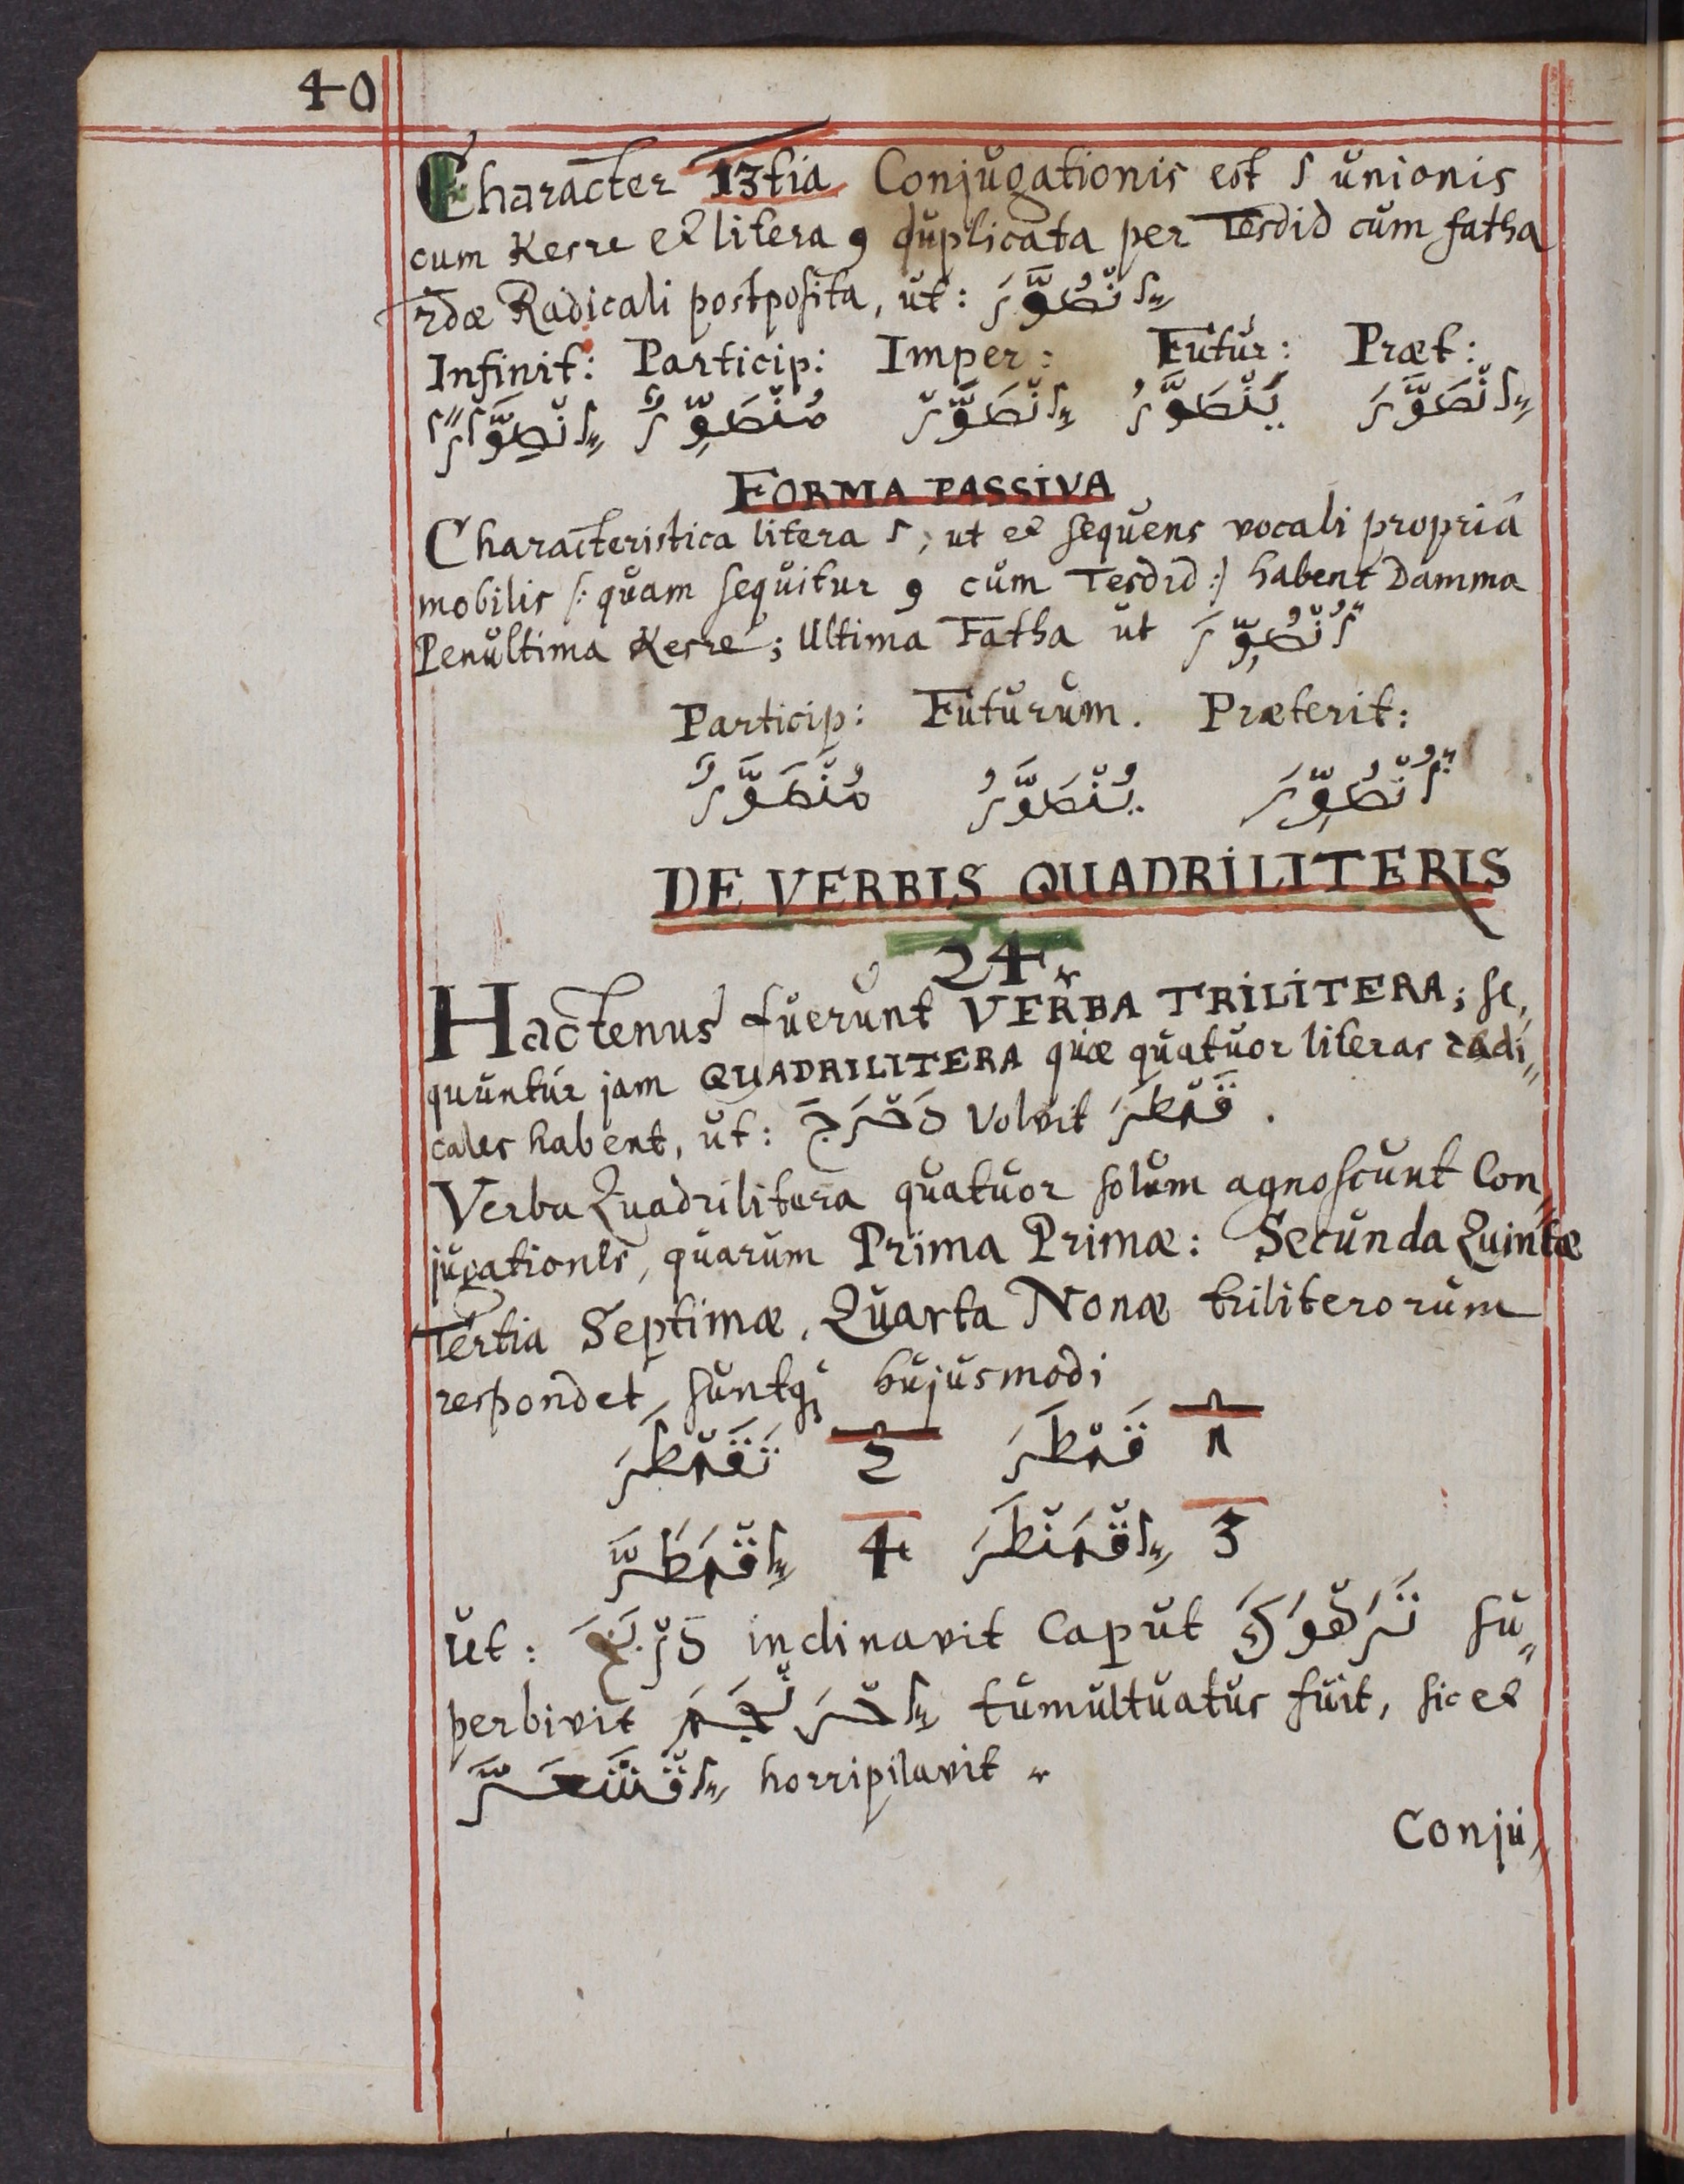 40
Character 13tia Conjugationis est ا unionis
cum Kesre et litera و duplicata per Tesdid cum fatha
2dæ Radicali postposita, ut: اِنْصُوَّرَ
Infinit: Particip: Imper: Futur: Præt:
اِنْصِوَّارًا مُنْصَوِّرٌ اِنْصَوَّرْ يَنْصَوَّرُ اِنْصَوَّرَ
FORMA PASSIVA
Characteristica litera ا, ut et sequens vocali propriâ
mobilis /: quam sequitur و cum Tesdid :/ habent Damma
Penultima Kesre; Ultima Fatha ut اُنْصُوِّرَ
Particip: Futurum. Præterit:
مُنْصَوَّرٌ يُنْصَوَّرُ اُنْصُوِّرَ
DE VERBIS QUADRILITERIS
24.
Hactenus fuerunt VERBA TRILITERA; se,
quuntur jam QUADRILITERA quæ quatuor literas radi,,
cales habent, ut: دَحْرَجَ Volvit قَمْطَرَ.
Verba Quadrilitera quatuor solum agnoscunt Con,,
jugationes, quarum Prima Primæ: Secunda Quintæ
Tertia Septimæ, Quarta Nonæ triliterorum
respondet, suntq; hujusmodi
تَقَمْطَرَ 2 قَمْطَرَ 1
اِقْمَطَرَّ 4 اِقْمَنْطَرَ 3
ut: دَرْبَخَ inclinavit caput تَرَهْوَكَ su,,
perbivit اِحْرَنْجَمَ tumultuatus fuit, sic et
اِقْشَعَرَّ horripilavit.
Conju,